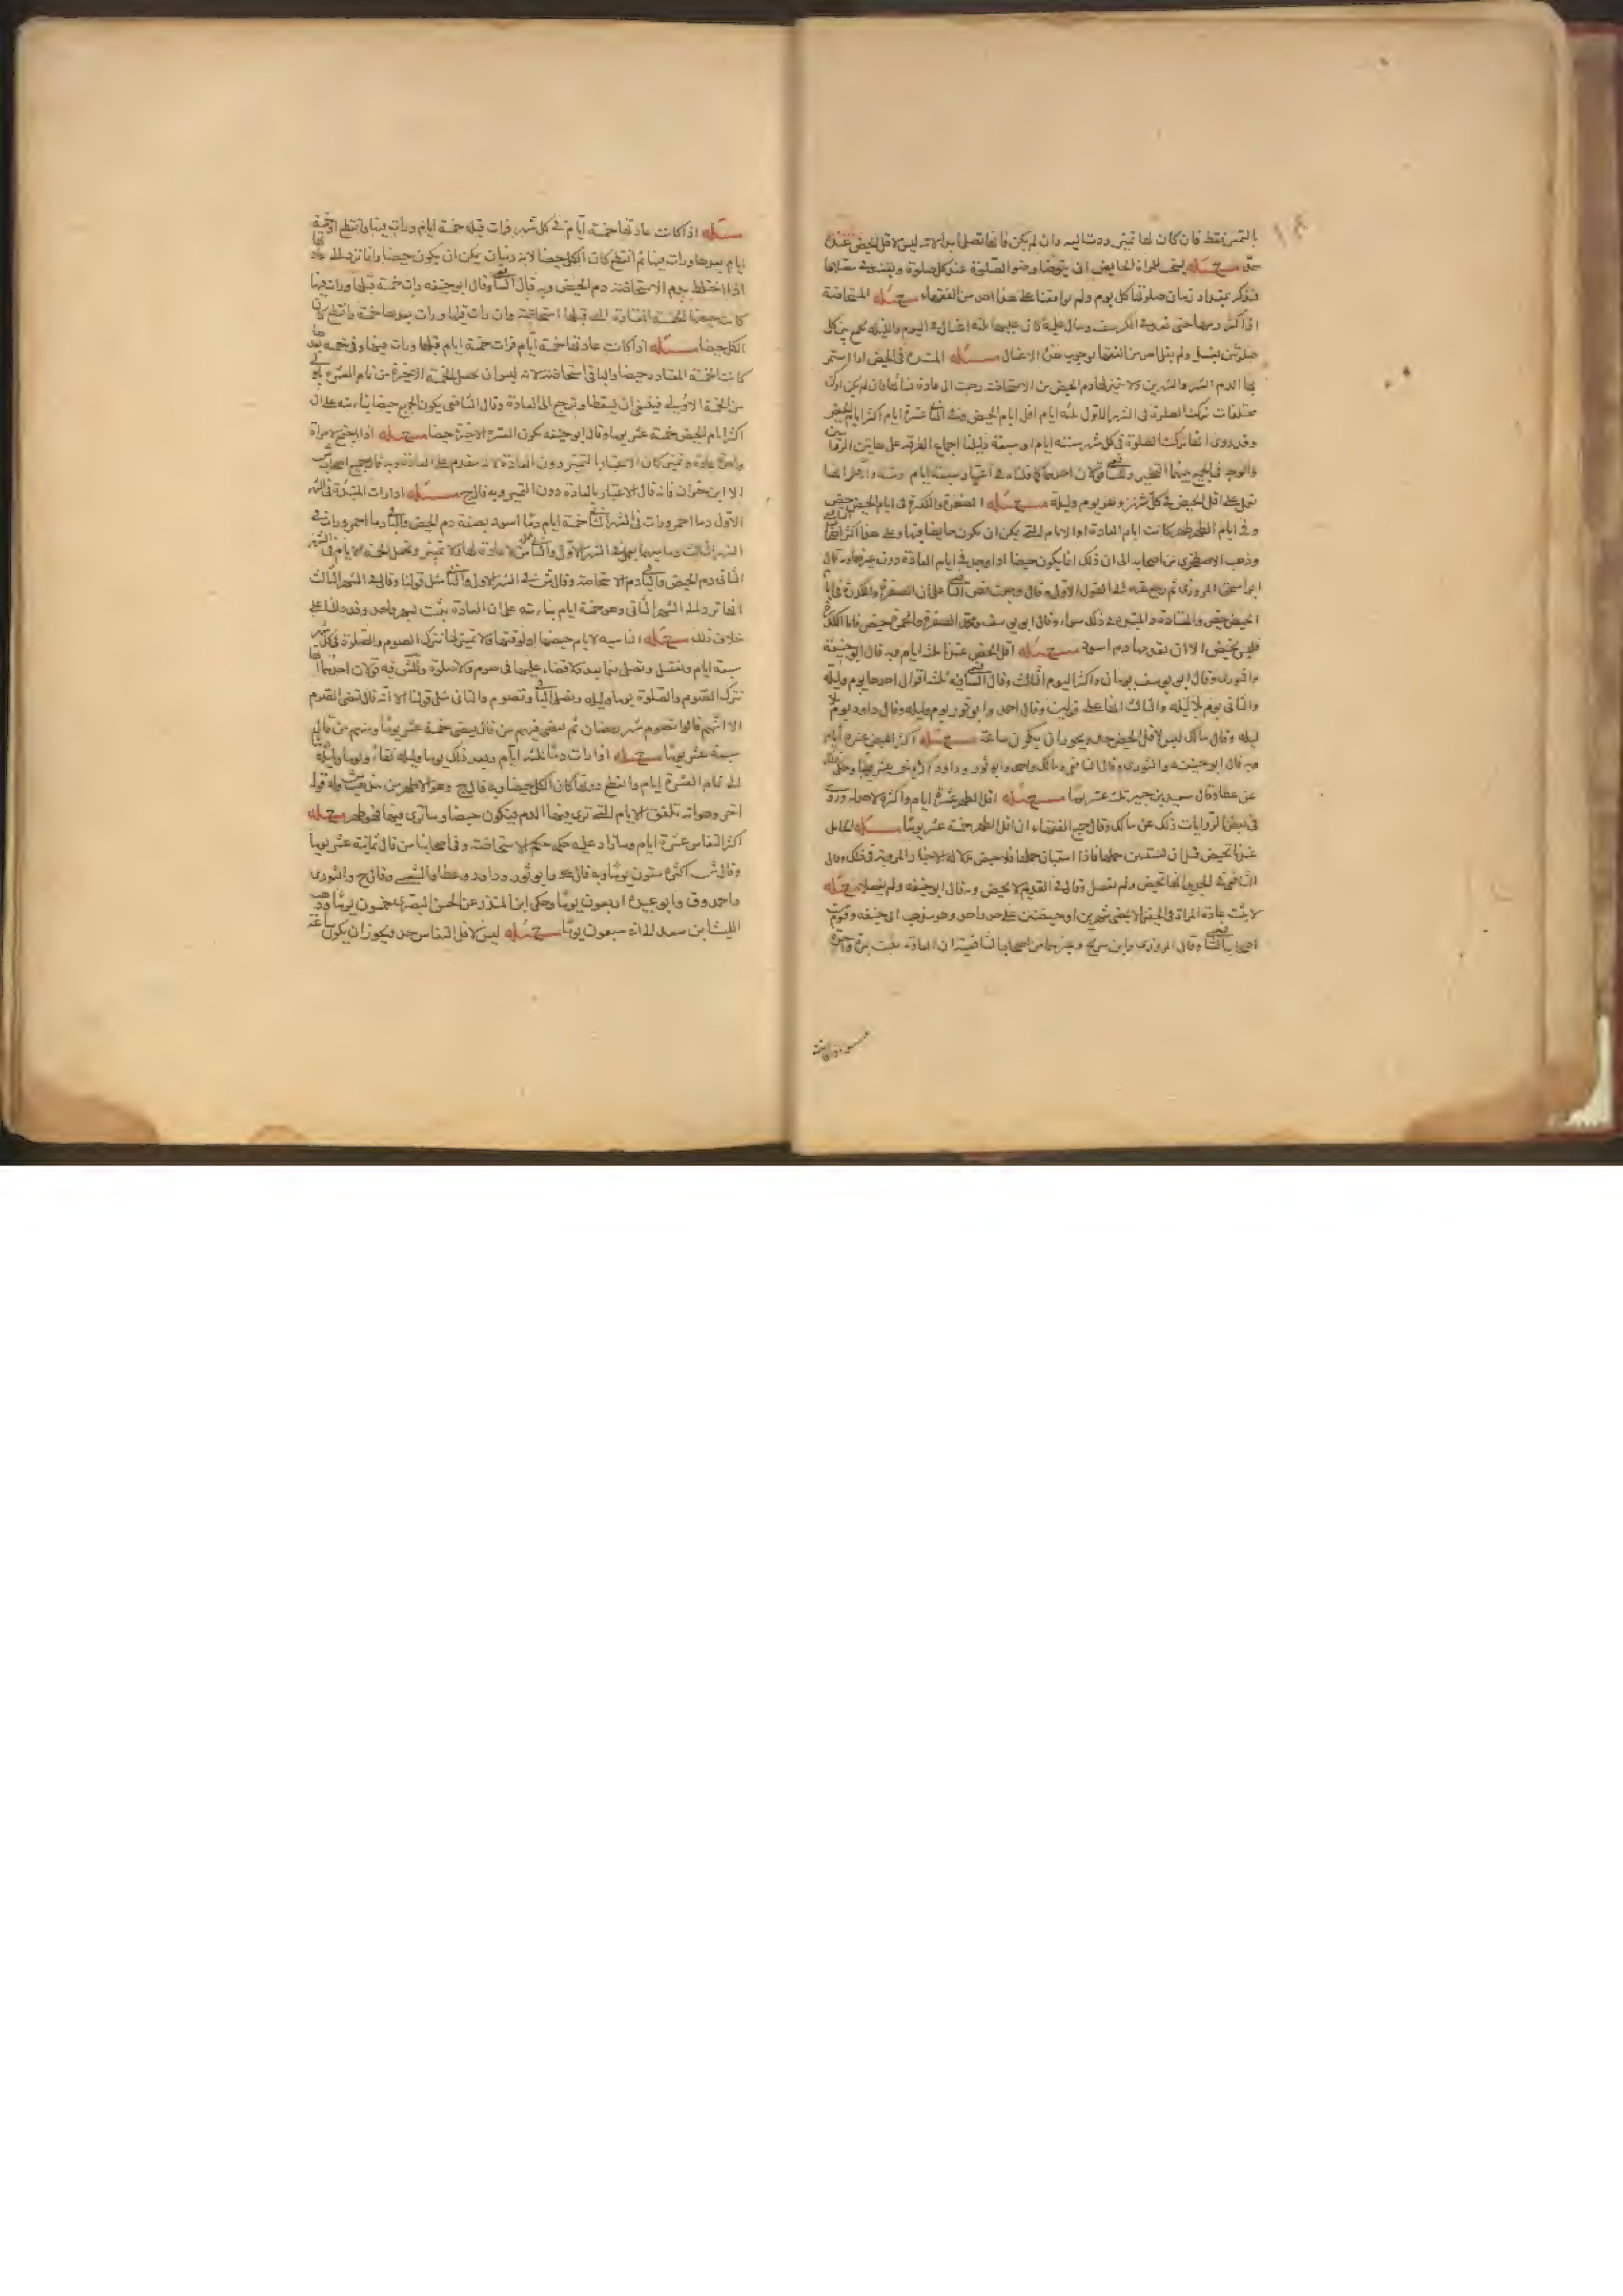 بالتميز فقط فان كان لها تميز ردت اليه وان لم يكن فانها تصلي ابدا لانه ليس لاقل الحيض عنده
حد مسئلة يستحب للمراة الحايض ان يتوضا وضوء الصلوة عند كل صلوة وتقعد في مصلاها
فتذكر بمقدار زمان صلوتها كل يوم ولم يوافقنا على هذا احد من الفقهاء مسئلة المستحاضة
اذا كثر دمها حتى نفذ الكرسف وسال عليه كان عليها ثلثة اغسال في اليوم والليله تجمع بين كل
صلوتين بغسل ولم يقل احد من الفقها بوجوب هذه الاغسال مسئلة المبتداة في الحيض اذا استمر
بها الدم الشهر والشهرين ولا تميز لها دم الحيض من الاستحاضة رجعت الى عادة نسائها فان لم يكن او كن
مختلفات تركت الصلوة في الشهر الاول ثلثة ايام اقل ايام الحيض وفي الثاني عشرة ايام اكثر ايام الحيض
وقد روى انها تركت الصلوة في كل شهر ستة ايام او سبعة دليلنا اجماع الفرقة على هاتين الروايتين
والوجه في الجمع بينهما التخيير وللشافعي قولان احدهما كما قلناه في اعتبار سبعة ايام وستة والاخر انها
تعمل على اقل الحيض في كل شهر وهو يوم وليلة مسئلة الصفرة والكدرة في ايام الحيض حيض
وفي ايام الطهر طهر كانت ايام العادة او الايام التي يمكن ان تكون حايضا فيها وعلى هذا اكثر اصحاب الشافعي
وذهب الاصطخري من اصحابه الى ان ذلك انما يكون حيضا اذا وجد في ايام العادة دون غيرها وبه قال
ابو اسحق المروزي ثم رجع عنه الى القول الاول وقال وجدت نص الشافعي على ان الصفرة والكدرة في ايام
الحيض حيض والمعتادة والمبتداة في ذلك سواء وقال ابو يوسف ومحمد الصفرة والحمرة حيض فاما الكدرة
فليس بحيض الا ان يتقدمها دم اسود مسئلة اقل الحيض عندنا ثلثة ايام وبه قال ابو حنيفة
والثوري وقال ابو يوسف يومان واكثر اليوم الثالث وقال الشافعي فيه ثلثة اقوال احدها يوم وليلة
والثاني يوم بلا ليله والثالث انها على قولين وقال احمد وابو ثور يوم وليله وقال داود يوم بلا
ليله وقال مالك ليس لاقل الحيض حد ويجوز ان يكون ساعة مسئلة اكثر الحيض عشرة ايام
وبه قال ابو حنيفة والثوري وقال الشافعي ومالك واحمد وابو ثور وداود اكثره خمسة عشر يوما وحكي ذلك
عن عطا وقال سعيد بن جبير ثلث عشر يوما مسئلة اقل الطهر عشرة ايام واكثره لا حد له وروى
في بعض الروايات ذلك عن مالك وقال جميع الفقهاء ان اقل الطهر خمسة عشر يوما مسئلة الحامل
عندنا تحيض قبل ان يستبين حملها فاذا استبان حملها فلا حيض دلالة الاخبار المروية في ذلك وقال
الشافعي في الجديد انها تحيض ولم يفصل وقال في القديم لا يحيض وبه قال ابو حنيفه ولم يفصل مسئلة
لا يثبت عادة المراة في الحيض الا بمضي شهرين او حيضتين على حد واحد وهو مذهب ابي حنيفه وقوم من
اصحاب الشافعي وقال المروزي وابن سريج وغيرهما من اصحاب الشافعي ان العادة تثبت بمرة واحدة
مسئلة اذا كانت عادتها خمسة ايام في كل شهر فرات قبله خمسة ايام ورات فيها وانقطع او خمسة
ايام بعدها ورات فيها ثم انقطع كان الكل حيضا لانه زمان يمكن ان يكون حيضا وانما ترد الى عادتها
اذا اختلط بدم الاستحاضة دم الحيض وبه قال الشافعي وقال ابو حنيفه ان رات خمسة قبلها ورات فيها
كانت حيضها الخمسة المعتادة التي قبلها استحاضة وان رات فيها ورات بعدها خمسة وانقطع كان
الكل حيضا مسئلة اذا كانت عادتها خمسة ايام فرات خمسة ايام قبلها ورات فيها وفي خمسة بعدها
كانت الخمسة المعتاده حيضا والباقي استحاضة لانه ليس ان تجعل الخمسة الاخيرة من تمام العشرة باولى
من الخمسة الاولى فينبغي ان يسقطا وترجع الى العادة وقال الشافعي يكون الجميع حيضا بناء منه على ان
اكثر ايام الحيض خمسة عشر يوما وقال ابو حنيفه تكون العشرة الاخيرة حيضا مسئلة اذا اجتمع لامراة
واحدة عادة وتميز كان الاعتبار بالتميز دون العادة لانه مقدم على العادة وبه قال جميع اصحاب ش
الا ابن خيران فانه قال الاعتبار بالعادة دون التميز وبه قال ح مسئلة اذا رات المبتداة في الشهر
الاول دما احمر ورات في الشهر الثاني خمسة ايام دما اسود بصفة دم الحيض والباقي دما احمر ورات في
الشهر الثالث دما مبهما يعمل في الشهر الاول والثالث عمل من لا عادة لها ولا تميز وتجعل الخمسة الايام في الشهر
الثاني دم الحيض والباقي دم الاستحاضة وقال ش في الشهر الاول والثاني مثل قولنا وقال في الشهر الثالث
انها ترد الى الشهر الثاني وهو خمسة ايام بناء منه على ان العادة يثبت بشهر واحد وقد دللنا على
خلاف ذلك مسئلة الناسيه لايام حيضها او لوقتها ولا تميز لها تترك الصوم والصلوة في كل شهر
سبعة ايام وتغتسل وتصلي فيما بعد ولا قضاء عليها في صوم ولا صلوة وللش فيه قولان احدهما انها
تترك الصوم والصلوة يوما وليله وتصلي الباقي وتصوم والثاني مثل قولنا الا انه قال تقضي الصوم
الا انهم قالوا تصوم شهر رمضان ثم تقضي فمنهم من قال يقضي خمسة عشر يوما ومنهم من قال
سبعة عشر يوما مسئلة اذا رات دما ثلثة ايام وبعد ذلك يوما وليله نقاء ويوما وليلة دما
الى تمام العشرة ايام وانقطع دونها كان الكل حيضا وبه قال ح وهو الاظهر من مذهب ش وله قول
اخر وهو انه تلفق الايام التي ترى فيها الدم فيكون حيضا وما ترى فيها نقاء طهر مسئلة
اكثر النفاس عشرة ايام وما زاد عليه حكمه حكم الاستحاضة وفي اصحابنا من قال ثمانية عشر يوما
وقال ش اكثره ستون يوما وبه قال ك وابو ثور وداود وعطا والشعبي وقال ح والثوري
واحمد وق وابو عبيدة اربعون يوما وحكى ابن المنذر عن الحسن البصري خمسون يوما وذهب
الليث ابن سعد الى انه سبعون يوما مسئلة ليس لاقل النفاس حد ويجوز ان يكون ساعة